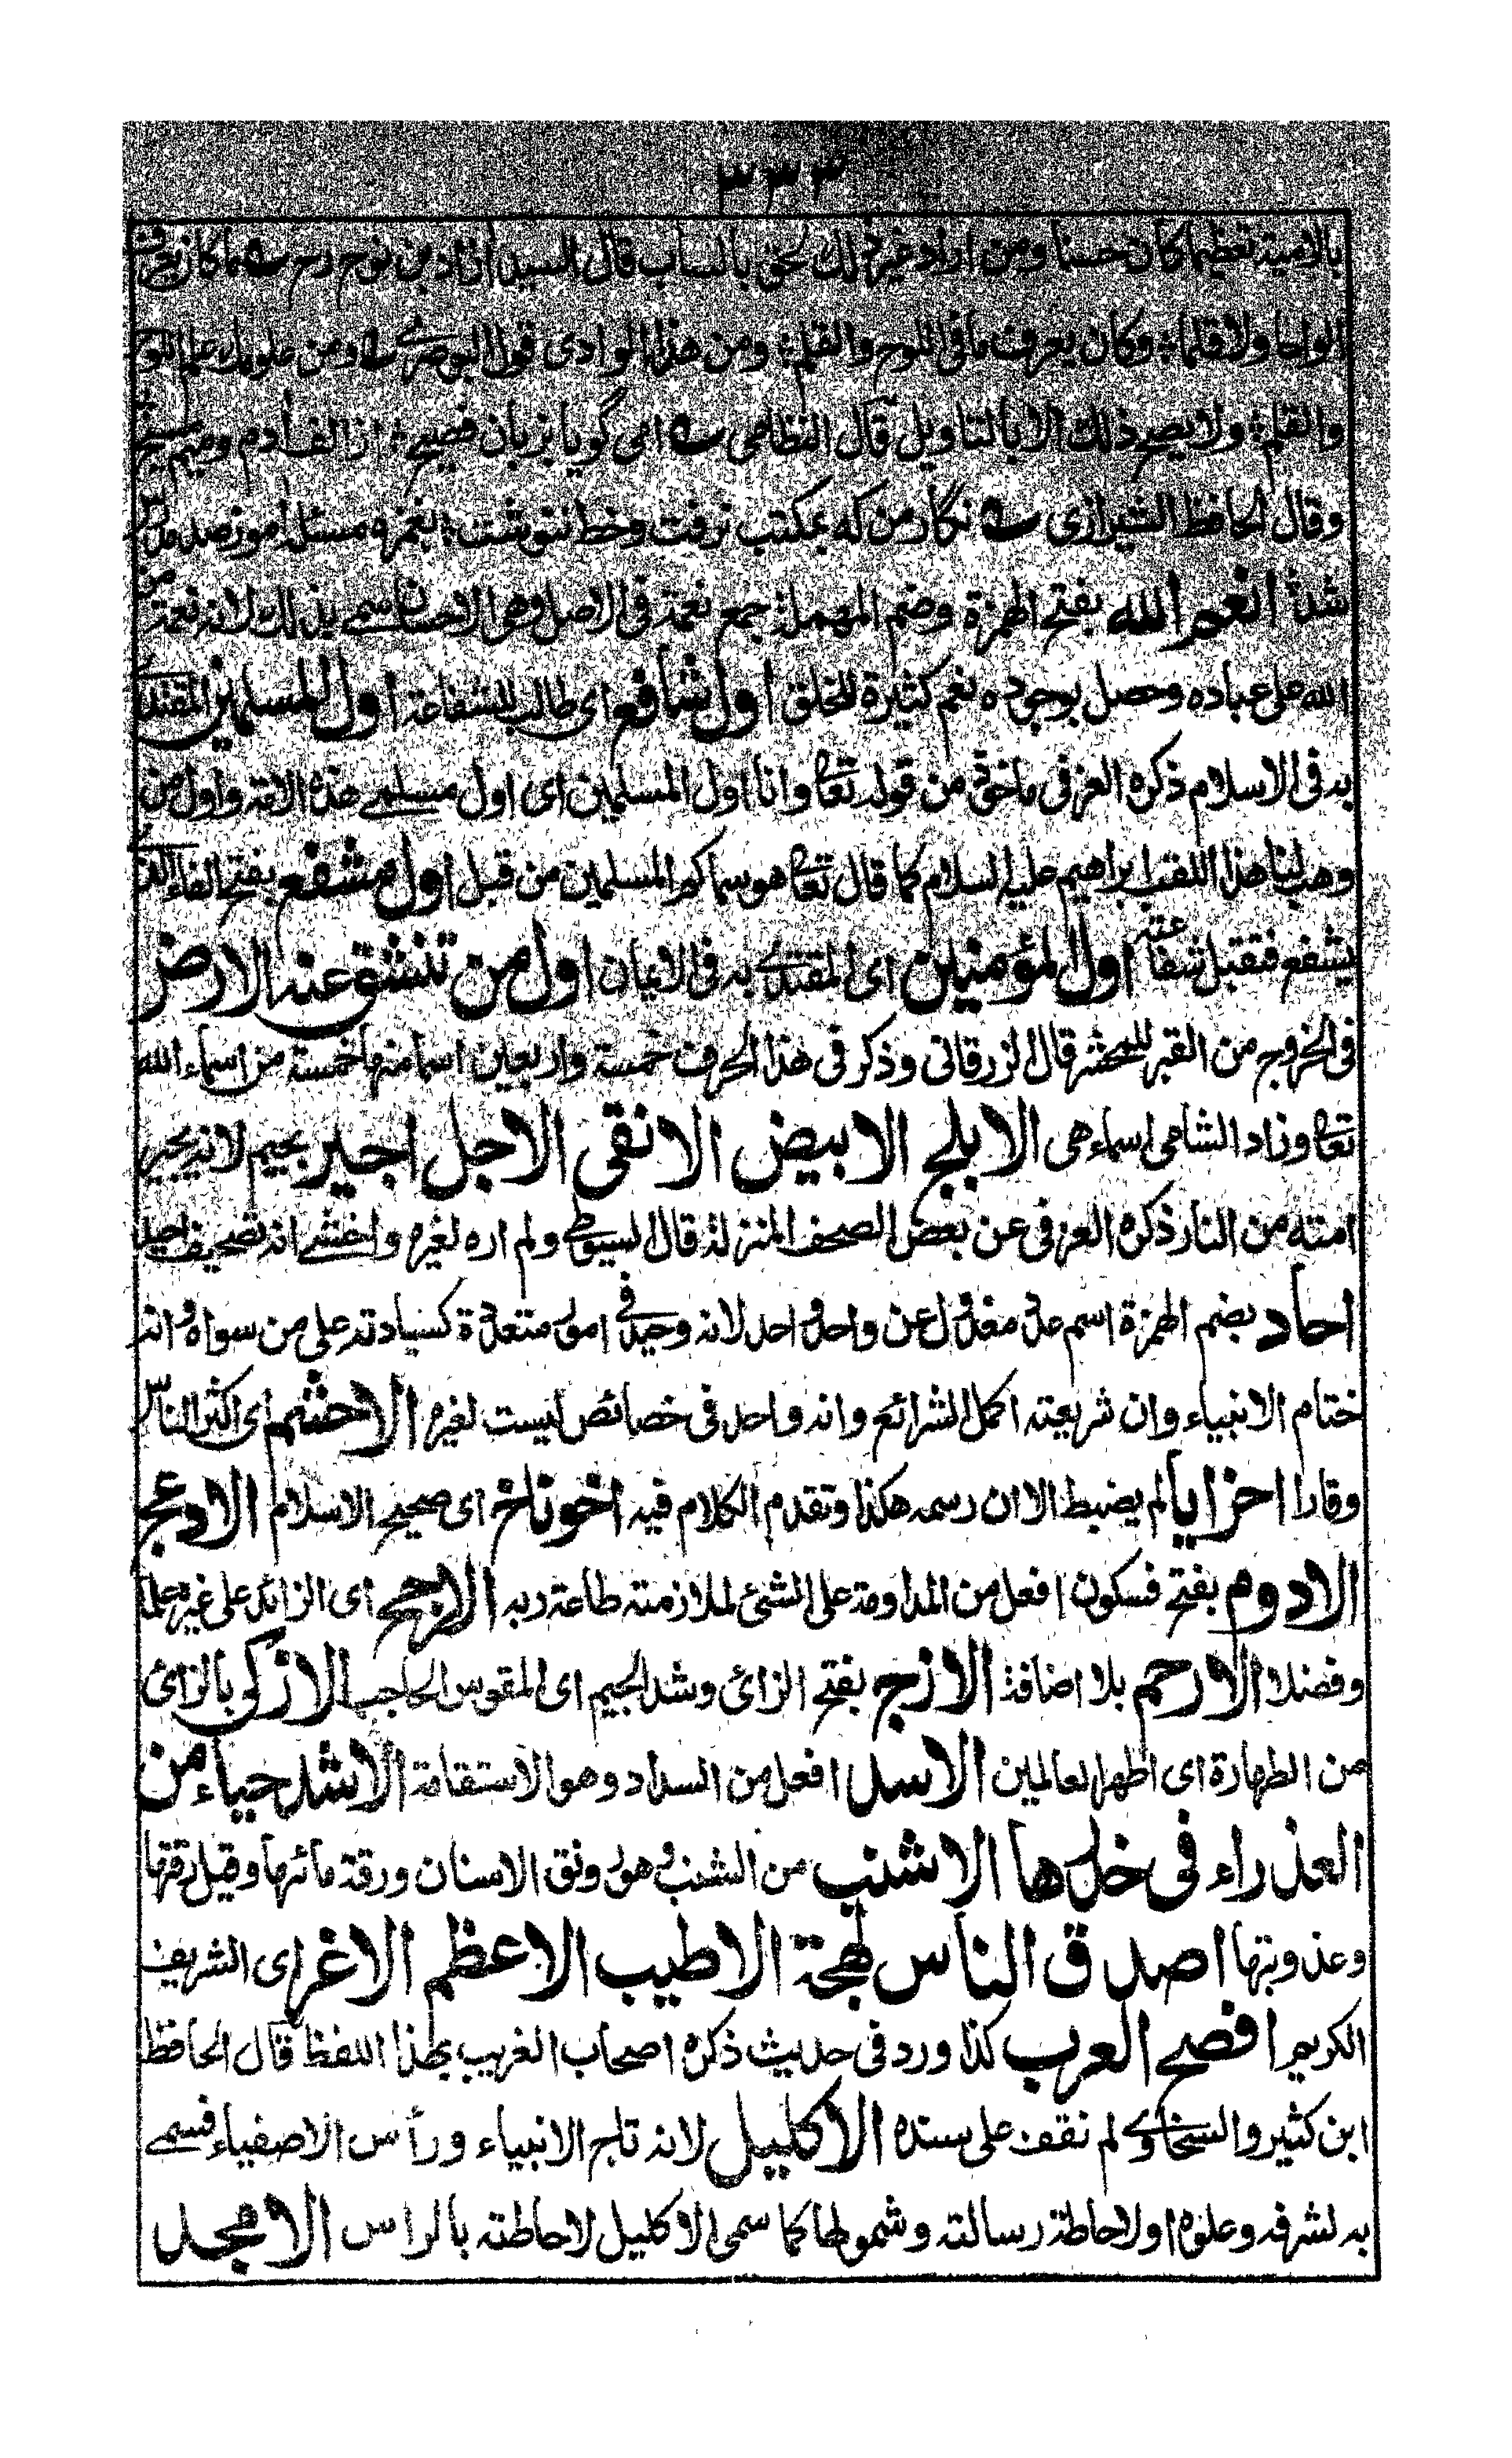 ٣٣٣
بالامية تعظيما كان حسنا ومن اراد غير ذلك لحق بالساب قال السيد ازاد بن نوح رح ؎ ما كان يعرف
الواحا ولا قلما ؛ وكان يعرف ما فى اللوح والقلم ؛ ومن هذا الوادى قول البوصيرے ؎ ومن علومك علم اللوح
والقلم ؛ ولا يصح ذلك الا بالتاويل قال النظامى ؎ امى گويا بزبان فصيح ؛ از الف آدم وميم مسيح
وقال الحافظ الشيرازى ؎ نگار من كه بمكتب نرفت وخط ننوشت ؛ بغمزه مسئله آموز صد مدرس
شد انعم الله بفتح الهمزة وضم المهملة جمع نعمة فى الاصل وهو الاحسان سمے بذلك لانه نعمة من
الله على عباده وحصل بوجوده نعم كثيرة للخلق اول شافع اى طالب للشفاعة اول المسلمين المقتدے
به فى الاسلام ذكره العزفى ماخوذ من قوله تعالى وانا اول المسلمين اى اول مسلمے هذه الامة واول من
وهب لنا هذا اللقب ابراهيم عليه السلام كما قال تعالى هو سماكم المسلمين من قبل اول مشفع بفتح الفاء الذے
يشفع فتقبل شفاعته اول المؤمنين اى المقتدے به فى الايمان اول من تنشق عنه الارض
فى الخروج من القبر للمحشر قال الزرقانى وذكر فى هذا الحرف خمسة واربعين اسما منها خمسة من اسماء الله
تعالى وزاد الشامى اسماء هى الابلج الابيض الاتقى الاجل اجير بجيم لانه يجير
امته من النار ذكره العزفى عن بعض الصحف المنزلة قال السيوطے ولم اره لغيره واخشے انه تصحيف احيد
احاد بضم الهمزة اسم عدد معدول عن واحد واحد لانه وحيد فى امور متعددة كسيادته على من سواه وانه
ختام الانبياء وان شريعته اكمل الشرائع وانه واحد فى خصائص ليست لغيره الاحشم اى اكثر الناس
وقارا احزايا لم يضبط الا ان رسمه هكذا وتقدم الكلام فيه اخوناخ اى صحيح الاسلام الادعج
الادوم بفتح فسكون افعل من المداومة على الشئ لملازمته طاعة ربه الارجح اى الزائد على غيره علما
وفضلا الارحم بلا اضافة الازج بفتح الزائ وشد الجيم اى المقوس الحاجب الازكى بالزائ
من الطهارة اى اطهر العالمين الاسد افعل من السداد وهو الاستقامة الاشد حياء من
العذراء فى خدرها الاشنب من الشنب وهو رونق الاسنان ورقة مائها وقيل رقتها
وعذوبتها اصدق الناس لهجة الاطيب الاعظم الاغر اى الشريف
الكريم افصح العرب كذا ورد فى حديث ذكره اصحاب الغريب بهذا اللفظ قال الحافظ
ابن كثير والسخاوے لم نقف على سنده الاكليل لانه تاج الانبياء ورأس الاصفياء فسمے
به لشرفه وعلوه او لاحاطة رسالته وشمولها كما سمى الاكليل لاحاطته بالراس الامجد